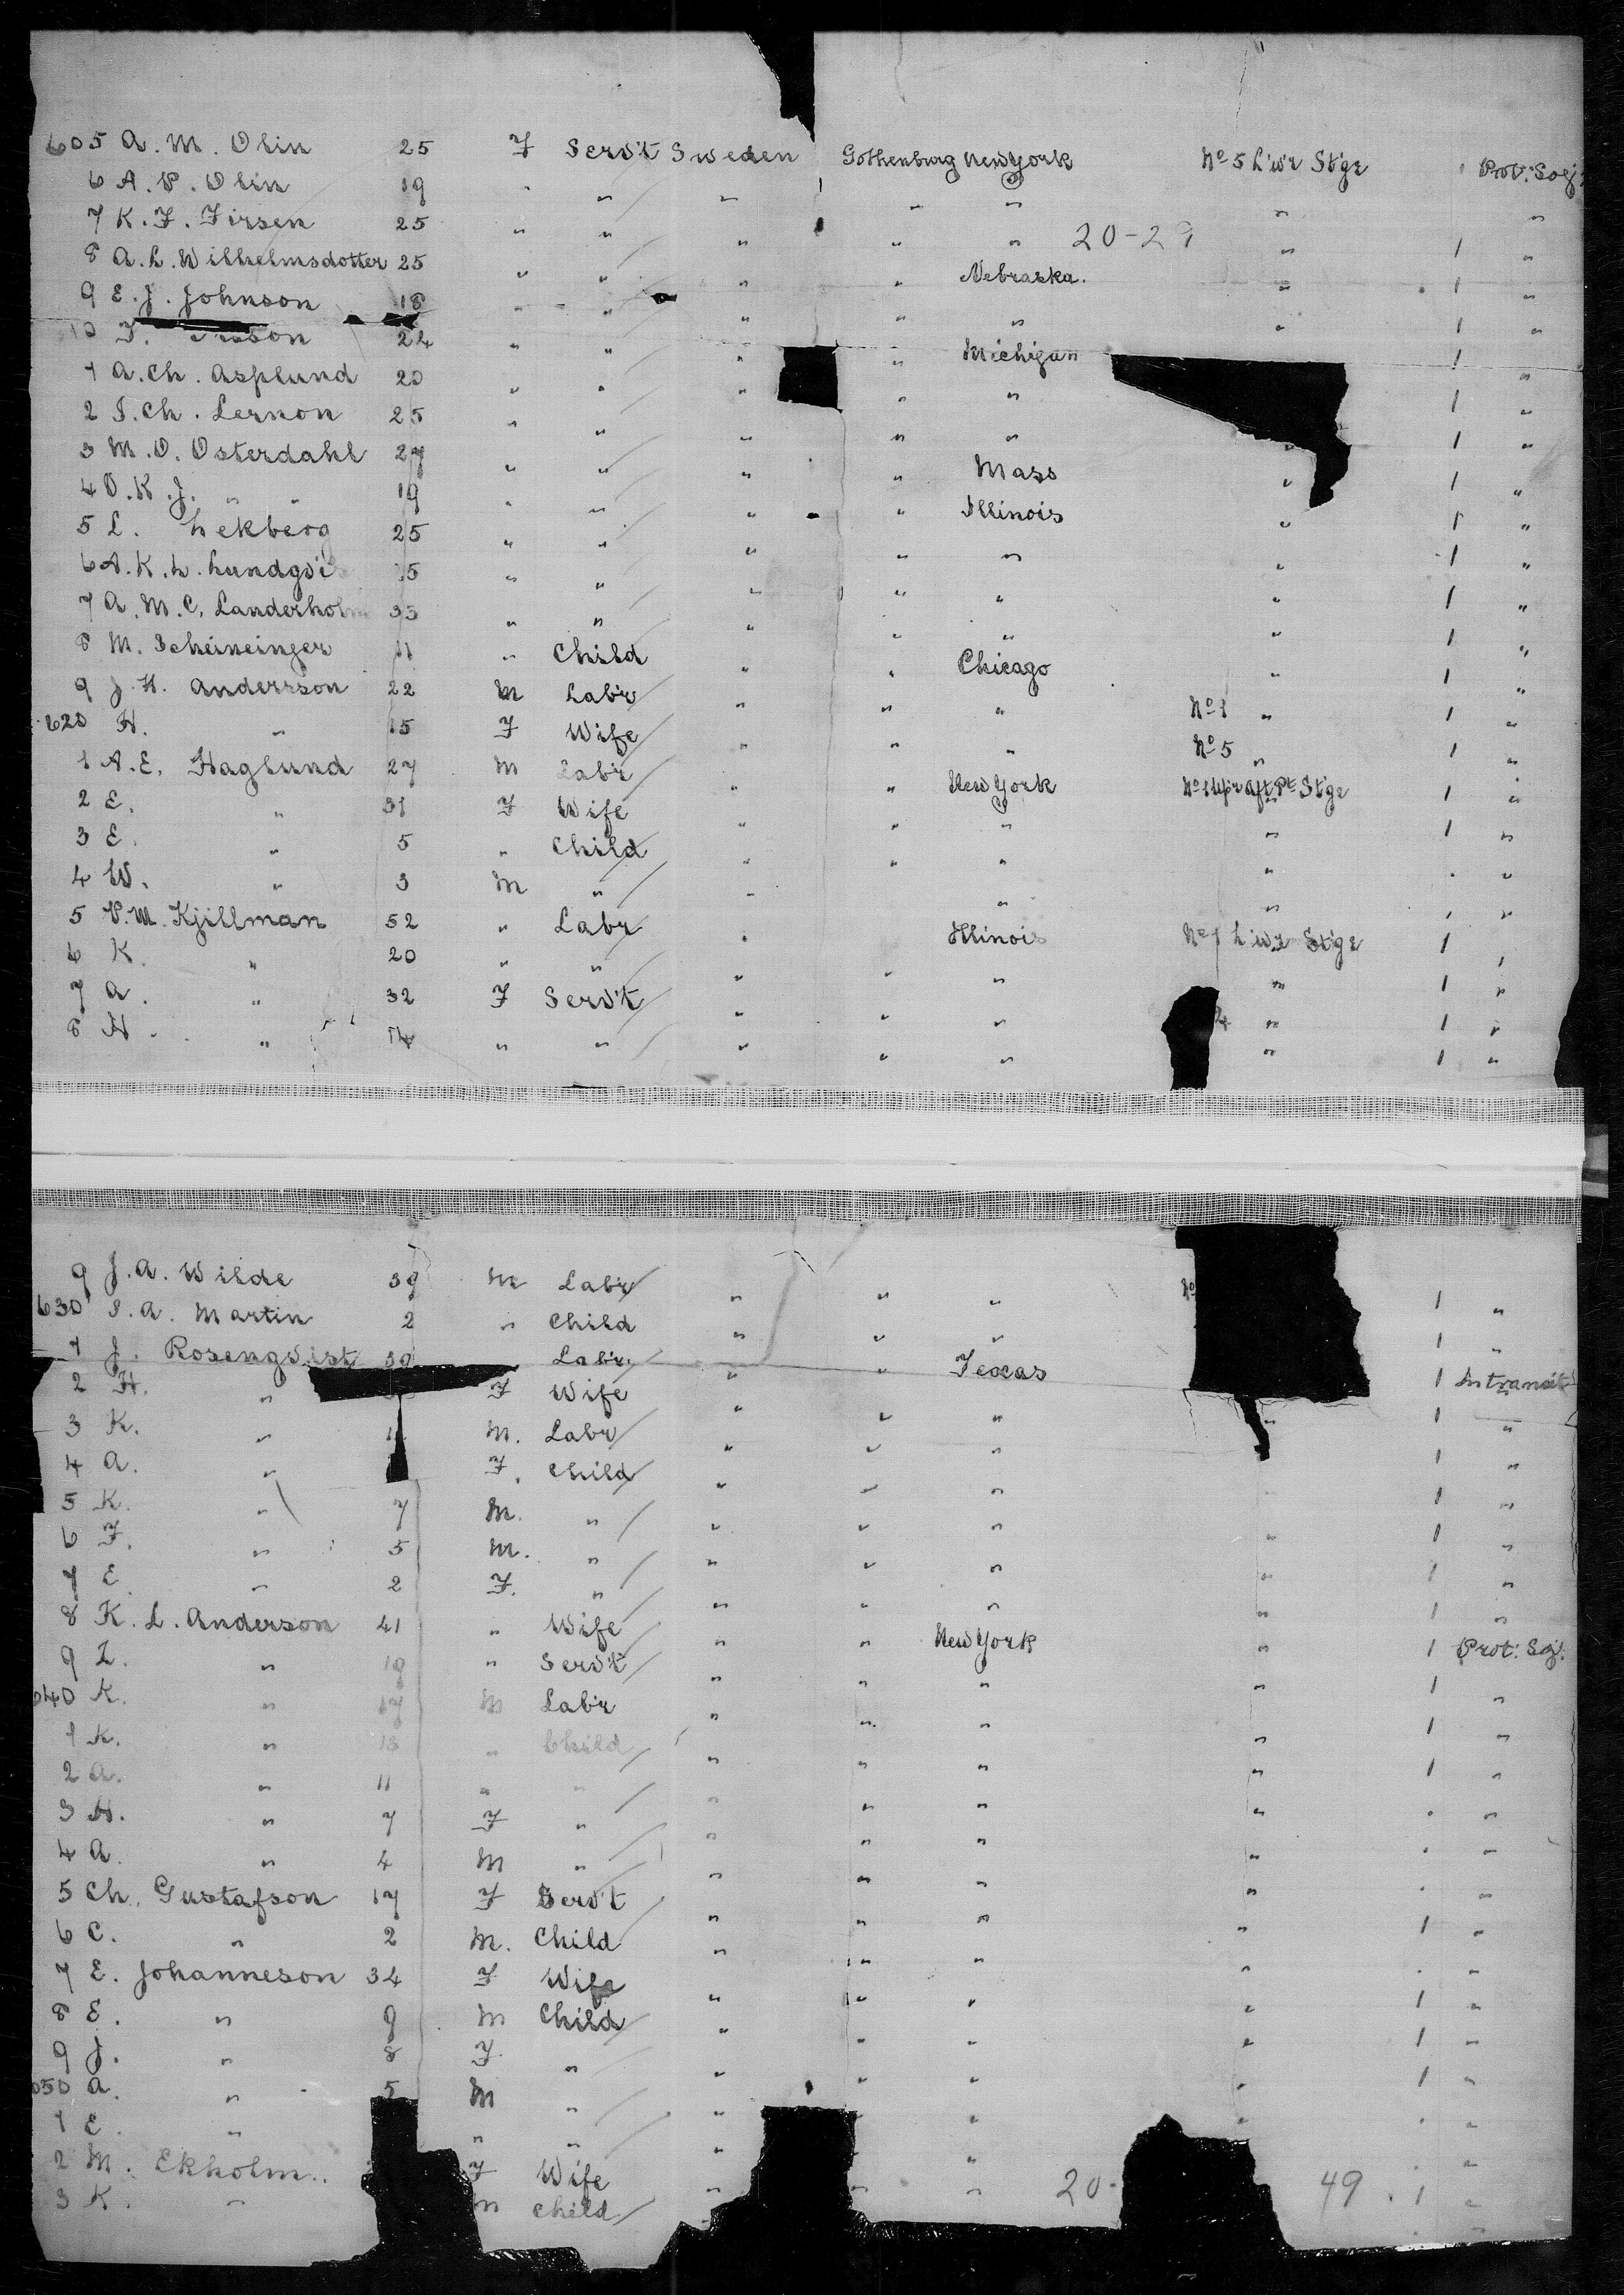 605 A. M. Olin 25 F Serv't Sweden Gothenburg New York No 5 L'w'r St'ge Prot: Soj:
6 A. P. Olin 19 " " " " " " "
7 K. F. Firsen 25 " " " " " 20-29 " 1 "
8 A. L. Wilhelmsdotter 25 " " " " Nebraska. " 1 "
9 E. J. Johnson 18 " " " " " " 1 "
10 24 " " " " Michigan 1 "
1 A. Ch. Asplund 20 " " " " " 1 "
2 S. Ch. Lernon 25 " " " " " " 1 "
3 M. O. Osterdahl 27 " " " " Mass " 1 "
4 O. K. J. " " 19 " " " " Illinois " 1 "
5 L. Lekberg 25 " " " " " " 1 "
6 A. K. L. " " " " " " 1 "
7 A. M. C. Landerholm 33 " " " " " " 1 "
8 M. Scheineinger 11 " Child " " Chicago " 1 "
9 J. H. Andersson 22 M Lab'r " " " No 1 " 1 "
620 H. " 15 F Wife " " " No 5 " 1 "
1 A. E. Haglund 27 M Lab'r " " New York No 1 Up'r Aft Pt St'ge 1 "
2 E. " 31 F Wife " " " " 1 "
3 E. " 5 " Child " " " " "
4 W. " 3 M " " " " "
5 P. M. Kjillman 52 " Lab'r " Illinois No 1 L'w'r St'ge 1 "
6 K. " 20 " " " " " " 1 "
7 A. " 32 F Serv't " " " 4 " 1 "
8 H. " 14 " " " " " " 1 "
9 J. A. Wilde 39 M Lab'r " " " No 1 "
630 S. A. Martin 2 " Child " " " 1 "
1 J. Rosengvist 39 Lab'r " " Texas 1 Intransit
2 H. " F Wife " " " " 1 "
3 K. " M. Lab'r " " " 1 "
4 A. " F. Child " " " 1 "
5 K. " 7 M. " " " " " 1 "
6 F. " 5 M. " " " " " 1 "
7 E. " 2 F. " " " " " 1 "
8 K. L. Anderson 41 " Wife " " New York " 1 Prot: Soj:
9 L. " 19 " Serv't " " " " 1 "
640 K. " 17 M Lab'r " " " " 1 "
1 K. " 13 " Child " " " " 1 "
2 A. " 11 " " " " " " "
3 H. " 7 F " " " " " "
4 A. " 4 M " " " " " "
5 Ch. Gustafson 17 F Serv't " " " " 1 "
6 C. " 2 M. Child " " " " "
7 E. Johanneson 34 F Wife " " " " 1 "
8 E. " 9 M Child " " " " 1 "
9 J. " 8 F " " " " " 1 "
650 A. " 5 M " " " " " "
1 E. " " " " " "
2 M. Ekholm. F Wife " " " 20- 49 1 "
3 K. " M Child "